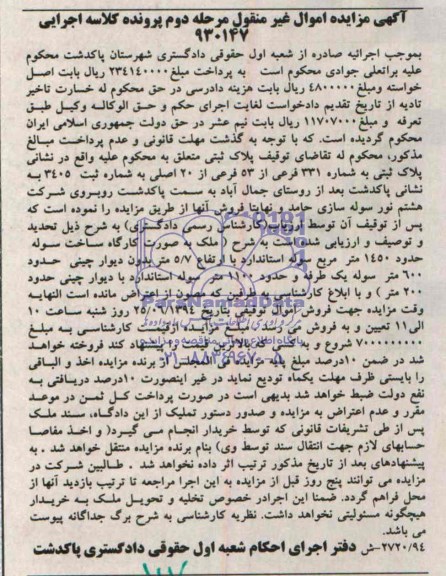 آگهی مزایده اموال غیر منقول مرحله دوم پرونده کلاسه اجرایی
۹۳۰۱۴۷
بموجب اجرائیه صادره از شعبه اول حقوقی دادگستری شهرستان پاکدشت محکوم
علیه براتعلی جوادی محکوم است به پرداخت مبلغ ۲۳۴۱۴۰۰۰۰ ریال بابت اصل
خواسته ومبلغ ۴۸۰۰۰۰۰ ریال بابت هزینه دادرسی در حق محکوم له خسارت تاخیر
تادیه از تاریخ تقدیم دادخواست لغایت اجرای حکم و حق الوکاله وکیل طبق
تعرفه و مبلغ ۱۱۷۰۷۰۰۰ ریال بابت نیم عشر در حق دولت جمهوری اسلامی ایران
محکوم گردیده است. که با توجه به گذشت مهلت قانونی و عدم پرداخت مبالغ
مذکور، محکوم له تقاضای توقیف پلاک ثبتی متعلق به محکوم علیه واقع در نشانی
پلاک ثبتی به شماره ۳۳۱ فرعی از ۵۳ فرعی از ۲۰ اصلی به شماره ثبت ۳۴۰۵ به
نشانی پاکدشت بعد از روستای جمال آباد به سمت پاکدشت روبروی شرکت
هشتم نور سوله سازی حامد و نهایتا فروش آنها از طریق مزایده را نموده است که
پس از توقیف آن توسط ارزیاب (کارشناس رسمی دادگستری) به شرح ذیل تحدید
و توصیف و ارزیابی شده است به شرح ( ملک به صورت کارگاه ساخت سوله
حدود ۱۴۵۰ متر مربع سوله استاندارد با ارتفاع ۵/۷ متر بدون دیوار چینی حدود
۶۰۰ متر سوله یک طرفه و حدود ۱۱۰۰ متر سوله استاندارد با دیوار چینی حدود
۲۰۰ متر ) و با ابلاغ کارشناسی به طرفین که مصون از اعتراض مانده است النهایه
وقت مزایده جهت فروش اموال توقیفی بتاریخ ۲۵/۰۹/۱۳۹۴ روز شنبه ساعت ۱۰
الی ۱۱ تعیین و به فروش می رسد. مزایده از قیمت کارشناسی به مبلغ
۷۰۰۰۰۰۰۰۰۰ شروع و به کسانی که بالاترین قیمت را پیشنهاد کند فروخته خواهد
شد در ضمن ۱۰درصد مبلغ پایه مزایده فی المجلس از برنده مزایده اخذ و الباقی
را بایستی ظرف مهلت یکماه تودیع نماید در غیر اینصورت ۱۰درصد دریافتی به
نفع دولت ضبط خواهد شد بدیهی است در صورت پرداخت کل ثمن در موعد
مقرر و عدم اعتراض به مزایده و صدور دستور تملیک از این دادگاه، سند ملک
پس از طی تشریفات قانونی که توسط خریدار انجام می گیرد( و اخذ مفاصا
حسابهای لازم جهت انتقال سند توسط وی) بنام برنده مزایده منتقل خواهد شد . به
پیشنهادهای بعد از تاریخ مذکور ترتیب اثر داده نخواهد شد . طالبین شرکت در
مزایده می توانند پنج روز قبل از مزایده به این اجرا مراجعه تا ترتیب بازدید آنها از
محل فراهم گردد. ضمنا این اجرادر خصوص تخلیه و تحویل ملک به خریدار
هیچگونه مسئولیتی نخواهد داشت. نظریه کارشناسی به شرح برگ جداگانه پیوست
می باشد.
۲۷۲۰/۹۴-ش دفتر اجرای احکام شعبه اول حقوقی دادگستری پاکدشت
ParsNamadData
۰۲۱-۸۸۳۴۹۶۷۰-۵